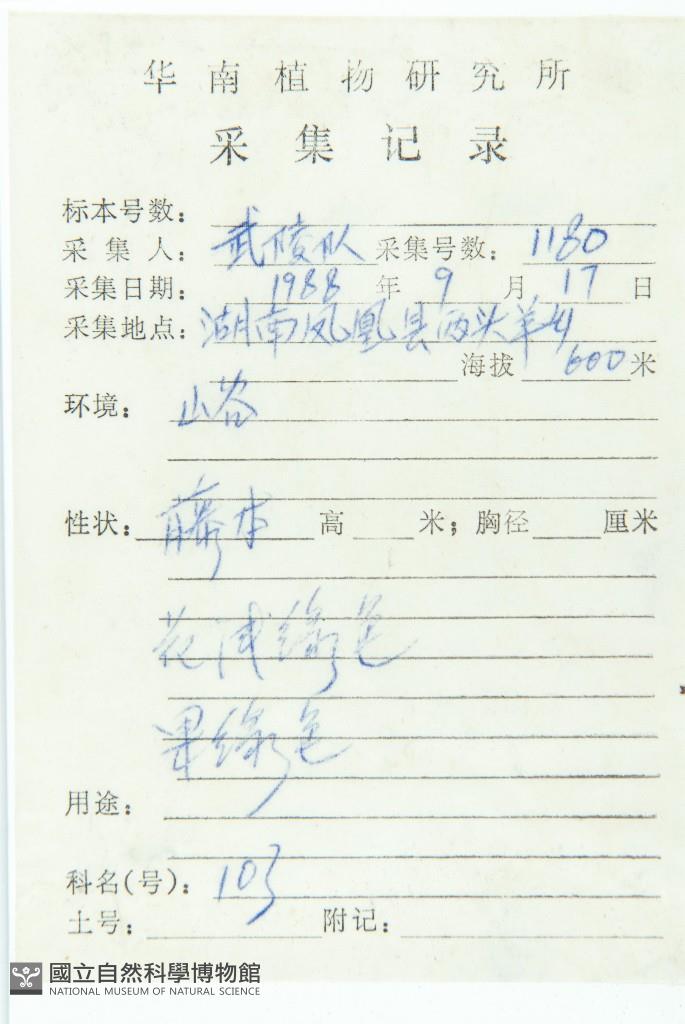 华南植物研究所
采集记录
标本号数：
采集人：武陵队 采集号数：1180
采集日期：1988年9月17日
采集地点：湖南凤凰县两头羊乡
海拔600米
环境：山谷
性状：藤本 高 米；胸径 厘米
花浅绿色
果绿色
用途：
科名(号)：103
土号： 附记：
國立自然科學博物館
NATIONAL MUSEUM OF NATURAL SCIENCE